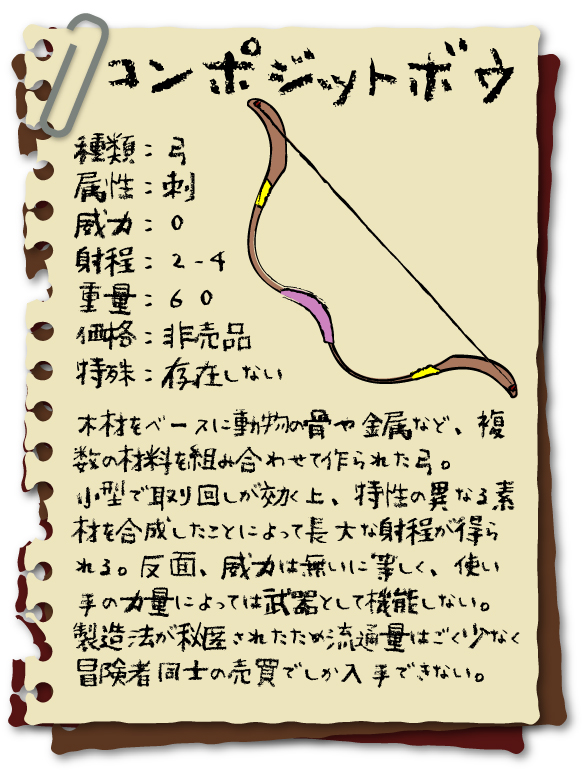 コンポジットボウ
種類：弓
属性：刺
威力：0
射程：2-4
重量：60
価格：非売品
特殊：存在しない
木材をベースに動物の骨や金属など、複
数の材料を組み合わせて作られた弓。
小型で取り回しが効く上、特性の異なる素
材を合成したことによって長大な射程が得ら
れる。反面、威力は無いに等しく、使い
手の力量によっては武器として機能しない。
製造法が秘匿されたため流通量はごく少なく
冒険者同士の売買でしか入手できない。